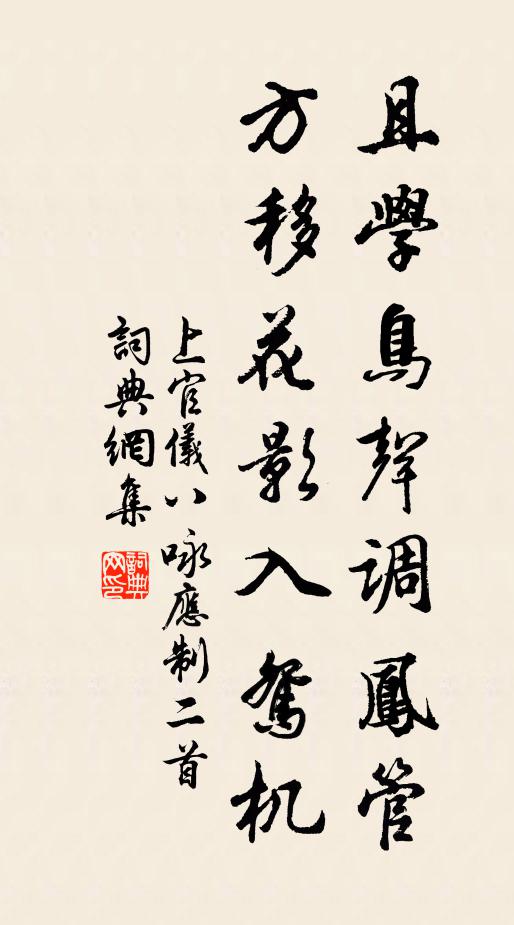 且學鳥聲調鳳管
方移花影入鴛机
上官儀八咏應制二首
詞典網集
詞典
网印